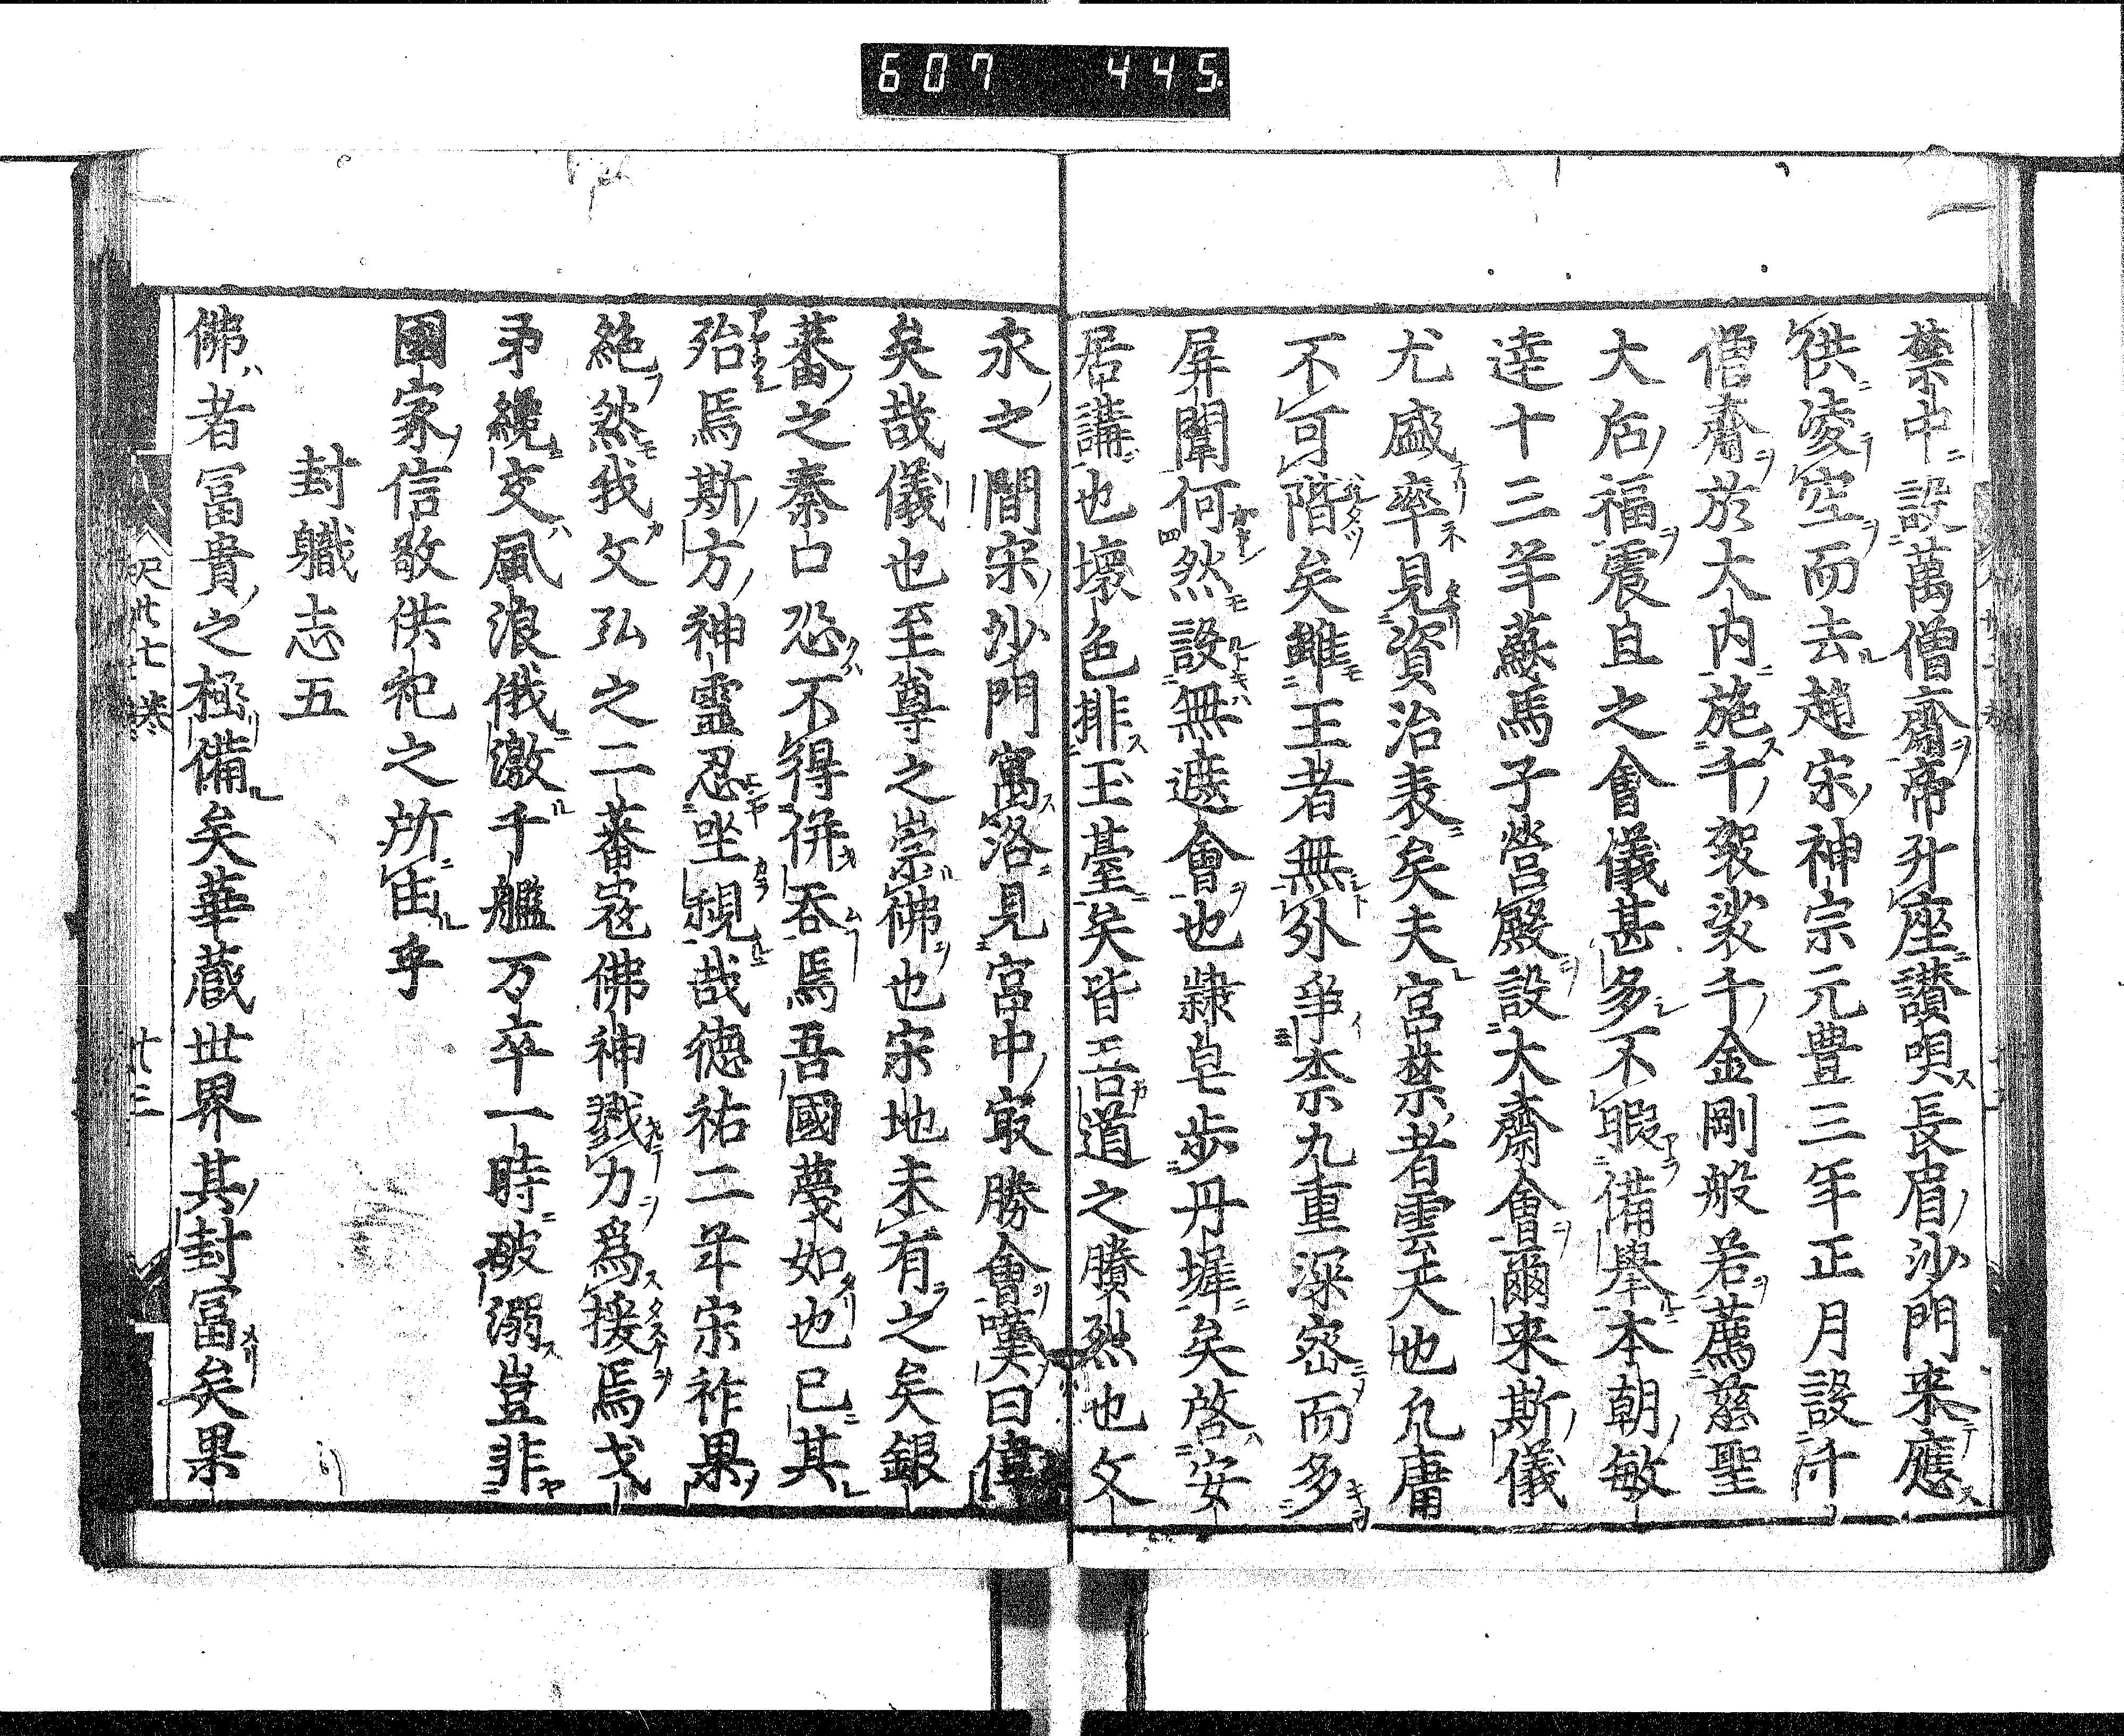 607 445
禁中設萬僧齋帝升座讃唄長眉沙門来應
供凌空而去趙宋神宗元豊三年正月設千
僧齋於大内施千袈裟千金剛般若薦慈聖
大后福震旦之會儀甚多不暇備舉本朝敏
達十三年蘇馬子營殿設大齋會爾来斯儀
尤盛率見資治表矣夫宮禁者雲天也凢庸
不可階矣雖王者無外爭柰九重深宻而多
屏闈何然設無遮會也隷皂歩丹墀矣啓安
居講也壞色排玉臺矣皆吾道之賸烈也文
永之間宋沙門寓洛見宮中㝡勝會嘆曰偉
矣哉儀也至尊之崇佛也宋地未有之矣銀
蕃之秦口恐不得併吞焉吾國夢如也已其
殆焉斯方神霊忍坐視哉徳祐二年宋祚果
絶然我文弘之二蕃㓂佛神戮力爲接焉戈
矛纔交風浪俄激千艦万卒一時破溺豈非
國家信敬供祀之所由乎
封職志五
佛者冨貴之極備矣華蔵世界其封冨矣果
尺廿七巻
廿三